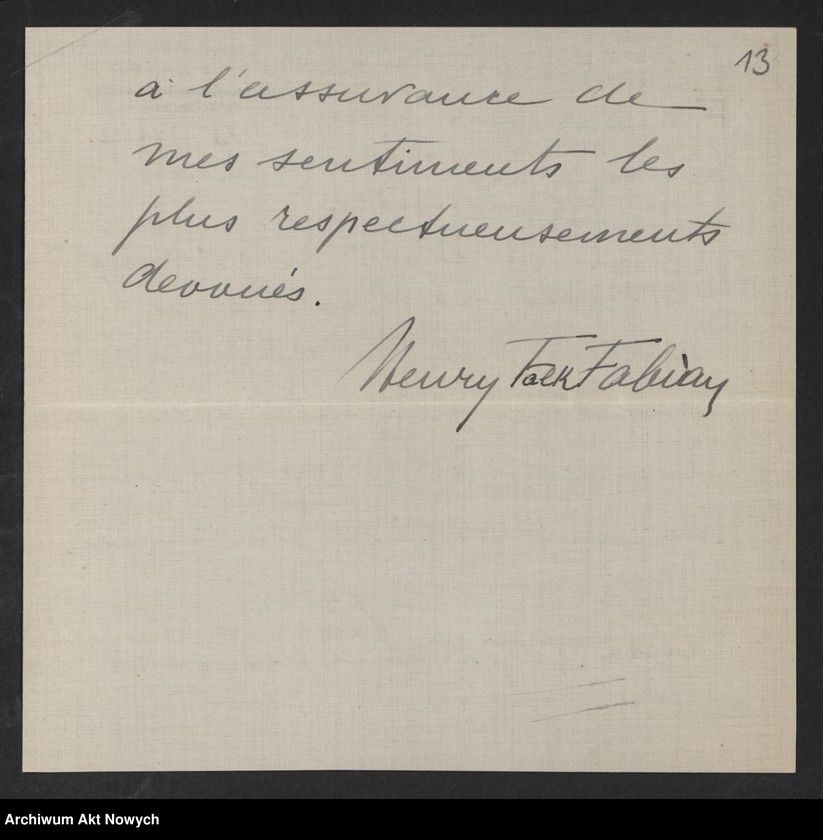 13
à l'assurance de
mes sentiments les
plus respectueusements
devoués.
Henry Falk Fabian
Archiwum Akt Nowych